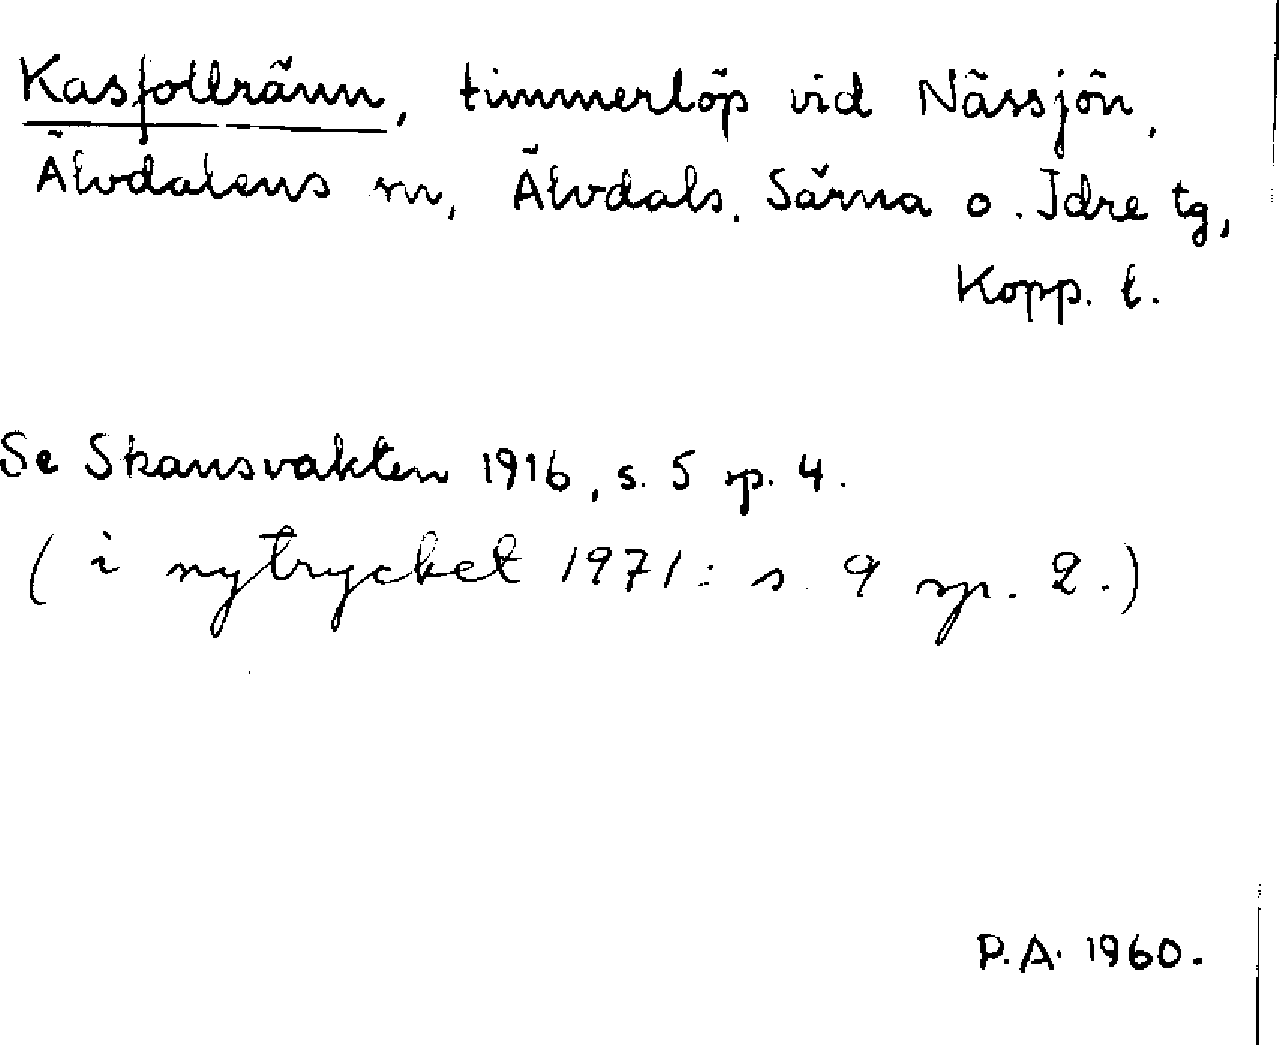 Kasfollränn, timmerlöp vid Nässjön,
Älvdalens sn, Älvdals, Särna o. Idre tg,
Kopp. l.
Se Skansvakten 1916, s. 5 sp. 4.
(i nytrycket 1971: s. 9 sp. 2.)
P.A. 1960.